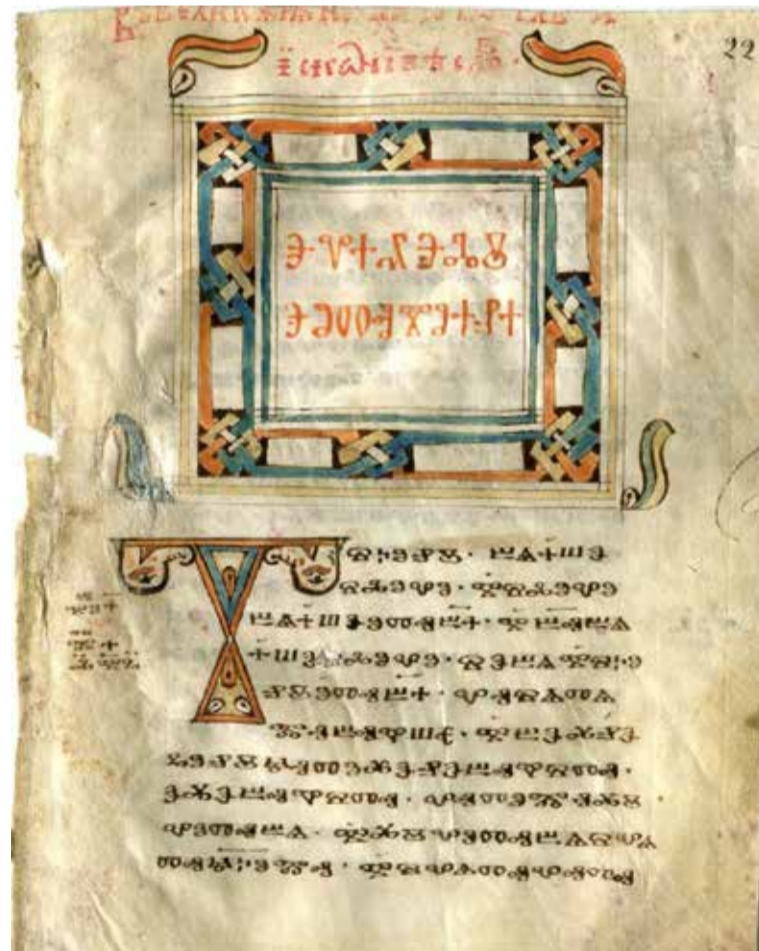 ⰅⰂⰀⰌⰅⰎⰋ
ⰅⰑⰕⰟⰊⰑⰀⰐⰀ
ⱄⰽⱁⱀⰹ · ⰱⱑⰰⱎⰵ
ⱄⰾⱁⰲⱁ · ⰻⱄⰾⱁⰲⱁ
ⰱⱑⰰⱎⰵⱁⱅⱏⰱⰰ · ⰻⰱⱏⰱⱑ
ⰰⱎⰵⱄⰾⱁⰲⱁ · ⱄⰵⰱⱑⰻⱄⰽⱁ
ⱀⰹⱁⱅⱏⰱⰰ · ⰲⱏⱄⱑⱅⱑ
ⰿⱏⰱⱏⰹⱎⱔ · ⰻⰱⰵⰶⱀⰵ
ⰳⱁⱀⰹⱍⱏⱅⱁⰶⰵⱀⰵⰱⱏⰹⱄⱅⱏ ·
ⰵⰶⰵⰱⱏⰹⱄⱅⱏ · ⰲⱏⱅⱁⰿⱏⰶⰹ
ⰲⱁⱅⱏⰱⱑ · ⰻⰶⰹⰲⱁⱅⱏⰱⱑⱄⰲⱑ
ⱅⱏⱍⰽⱁⰿⱏ · ⰻⱄⰲⱑⱅⱏⰲⱏⱅⱏ
22